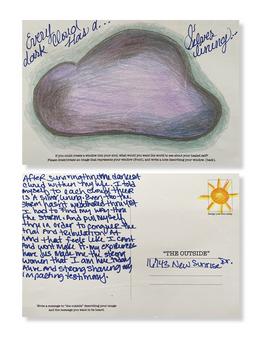 Every
dark cloud
Has a...
Silver
lining...
If you could create a window into your soul, what would you want the world to see about your healed self?
Please create/create an image that represents your window (front), and write a note describing your window (back).
After surviving the darkest
cloud within my life. I told
myself to each cloud their
is a silver lining. Even tho the
storm hasn't
I had to find my way thru
the storm. and pull myself
thru in order to conquer the
trial and tribulation. At
and that feels like I can't
and won't make it. my experience
here has made me the strong
woman that I am here today
Alive and strong sharing my
impacting testimony.
"THE OUTSIDE"
16143 New Sunrise Dr.
Write a message to "the outside" describing your image
and the message you want to be heard.